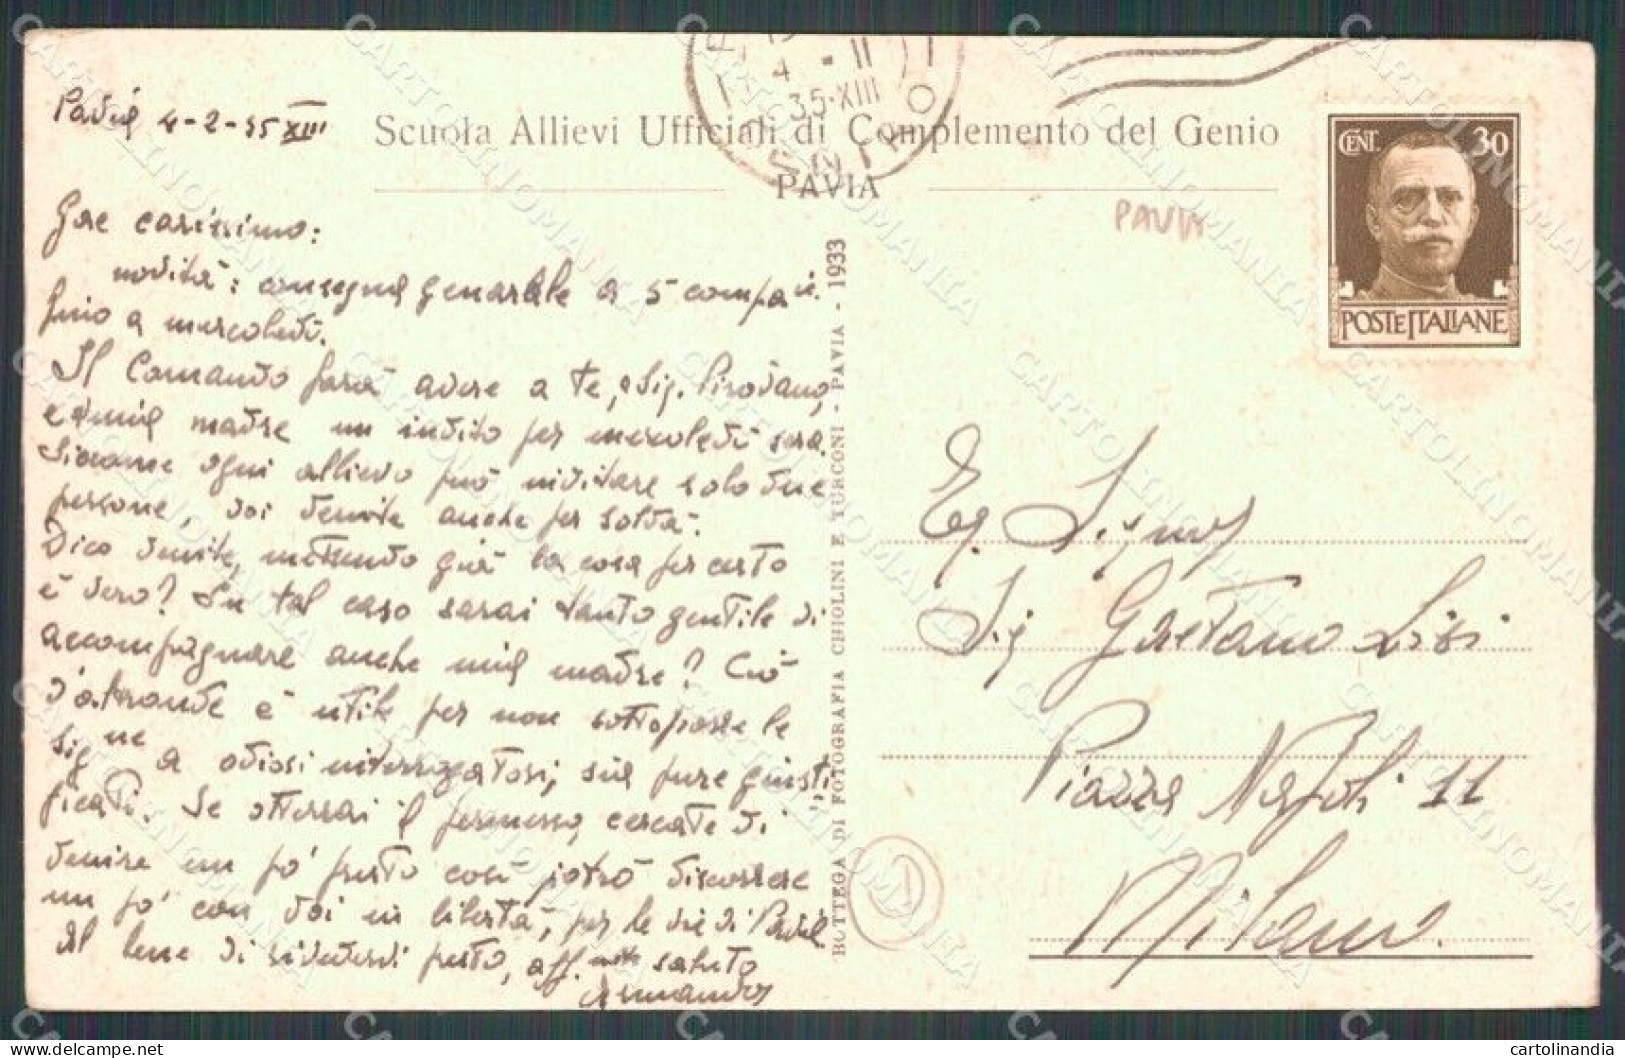 Pavia 4-2-35 XIII
Scuola Allievi Ufficiali di Complemento del Genio
PAVIA
4 - II
35·XIII
CENT. 30
POSTE ITALIANE
PAVIA
carissimo:
novità: consegna generale a 5 compa
fino a mercoledì.
Il Comando farà avere a te, a Sig. Pirovano,
e a mia madre un invito per mercoledì sera.
Siccome ogni allievo può invitare solo due
persone, voi venite anche per
Dico venite, mettendo già la cosa per certo
è vero? In tal caso sarai tanto gentile di
accompagnare anche mia madre? Ciò
d'altronde è utile per non sottoporre le
sig.ne a odiosi interrogatori, sia pure giusti
ficati. Se otterrai il permesso, cercate di
venire un po' presto così potrò discorrere
un po' con voi in libertà, per le vie di Pavia
Al bene di rivederci presto, aff. saluto
Armando
BOTTEGA DI FOTOGRAFIA CHIOLINI E TURCONI - PAVIA - 1933
Eg. Signor
Sig Gaetano
Piazza Napoli 11
Milano.
CARTOLINOMANIA
cartolinandia